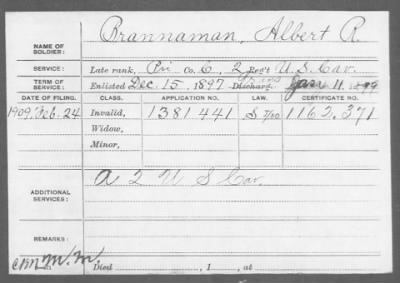 Brannaman, Albert R.
NAME OF SOLDIER:
SERVICE: Late rank, Pri Co. C, 2 Reg't U.S. Cav.
TERM OF SERVICE: Enlisted Dec. 15, 1897 Discharg. Jan 11, 1899
DATE OF FILING. CLASS. APPLICATION NO. LAW. CERTIFICATE NO.
1909, Feb. 24 Invalid, 1381441 1162.371
Widow,
Minor,
ADDITIONAL SERVICES: A 2 U S Cav.
REMARKS:
Died , 1 , at